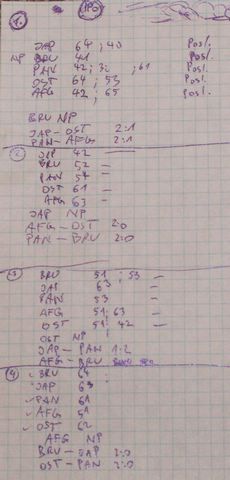 1.
JAP 64; 40 Posl.
NP BRU 41 Posl.
PAN 42; 3; ; 61 Posl.
OST 64; 53 Posl.
AFG 42; 65 Posl.
BRU NP
JAP - OST 2:1
PAN - AFG 2:1
2 JAP 42 —
BRU 52 —
PAN 54 —
OST 61 —
AFG 63 —
JAP NP
AFG - OST 2:0
PAN - BRU 2:0
3 BRU 51; 53 —
JAP 63 —
PAN 53 —
AFG 51; 63 —
OST 51; 42 —
OST NP
JAP - PAN 1:2
AFG - BRU
4 BRU 64
JAP 63
PAN 61
AFG 51
OST 62
AFG NP
BRU - JAP 2:0
OST - PAN 2:0